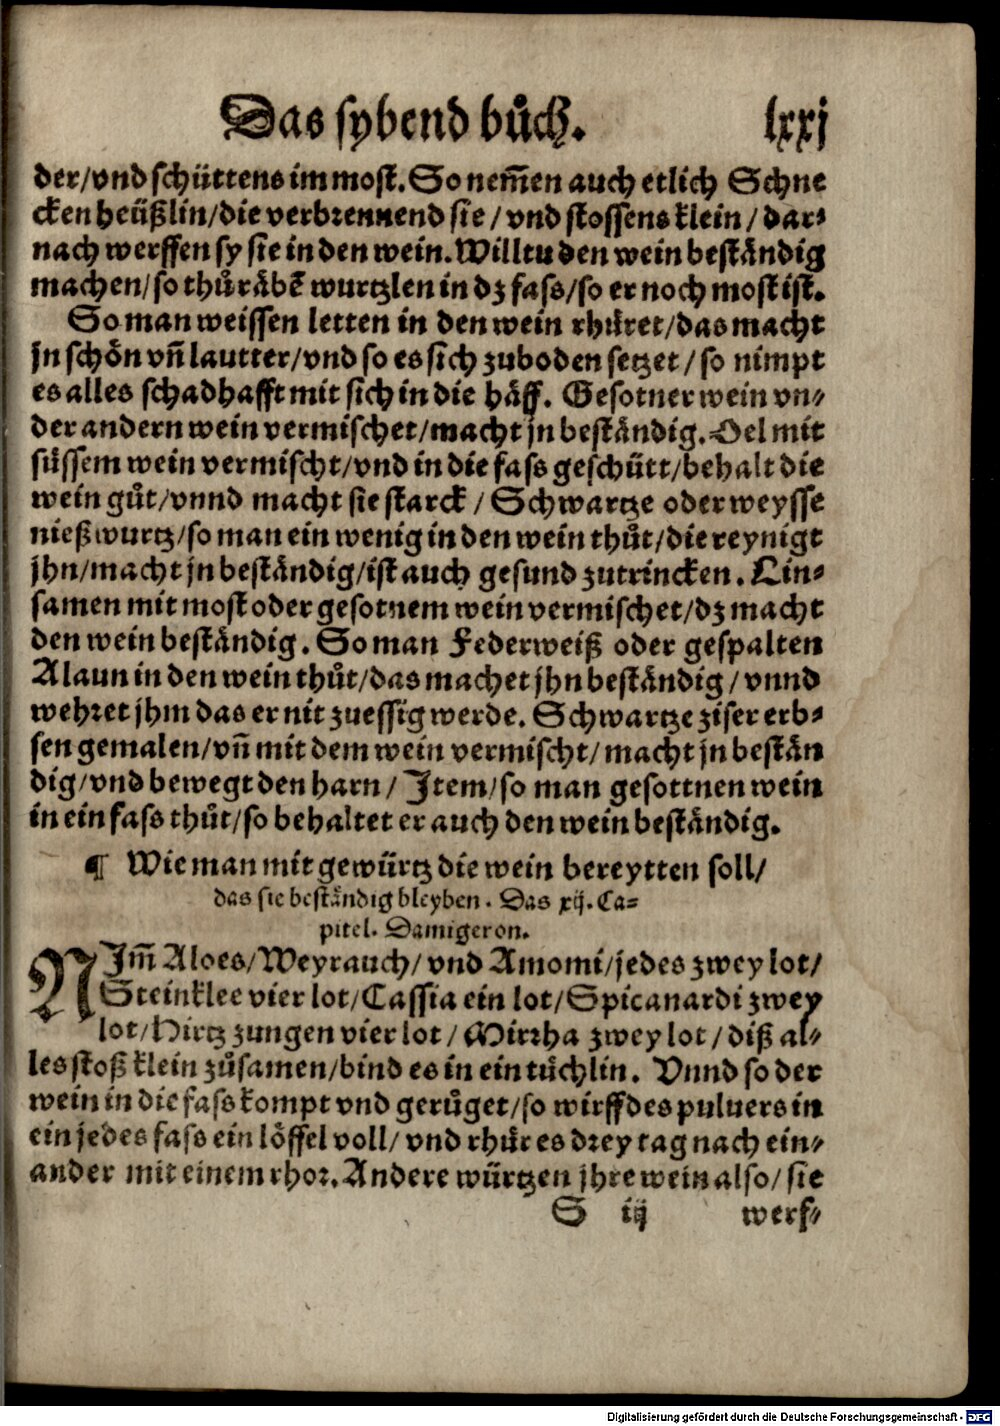 Das sybend bůch. lxxj
der/vnd schüttens im most. So nem̄en auch etlich Schne
cken heüßlin/die verbrennend sie/vnd stossens klein/dar-
nach werffen sy sie in den wein. Willtu den wein beständig
machen/so thů räbē wurtzlen in dz fass/so er noch most ist.
So man weissen letten in den wein rhüret/das macht
jn schön vn̄ lautter/vnd so es sich zuboden setzet/so nimpt
es alles schadhafft mit sich in die häff. Gesotner wein vn-
der andern wein vermischet/macht jn beständig. Oel mit
süssem wein vermischt/vnd in die fass geschütt/behalt die
wein gůt/vnnd macht sie starck/Schwartze oder weysse
nießwurtz/so man ein wenig in den wein thůt/die reynigt
jhn/macht jn beständig/ist auch gesund zutrincken. Lin-
samen mit most oder gesotnem wein vermischet/dz macht
den wein beständig. So man Federweiß oder gespalten
Alaun in den wein thůt/das machet jhn beständig/vnnd
wehret jhm das er nit zu essig werde. Schwartze ziser erb-
sen gemalen/vn̄ mit dem wein vermischt/macht jn bestän
dig/vnd bewegt den harn/Item/so man gesottnen wein
in ein fass thůt/so behaltet er auch den wein beständig.
¶ Wie man mit gewürtz die wein bereytten soll/
das sie beständig bleyben. Das xij. Ca-
pitel. Damigeron.
NIm̄ Aloes/Weyrauch/vnd Amomi/jedes zwey lot/
Steinklee vier lot/Cassia ein lot/Spicanardi zwey
lot/Hirtz zungen vier lot/Mirrha zwey lot/diß al-
les stoß klein zůsamen/bind es in ein tüchlin. Vnnd so der
wein in die fass kompt vnd gerůget/so wirff des puluers in
ein jedes fass ein löffel voll/vnd rhür es drey tag nach ein-
ander mit einem rhor. Andere würtzen jhre wein also/sie
S iij werf-
Digitalisierung gefördert durch die Deutsche Forschungsgemeinschaft - DFG